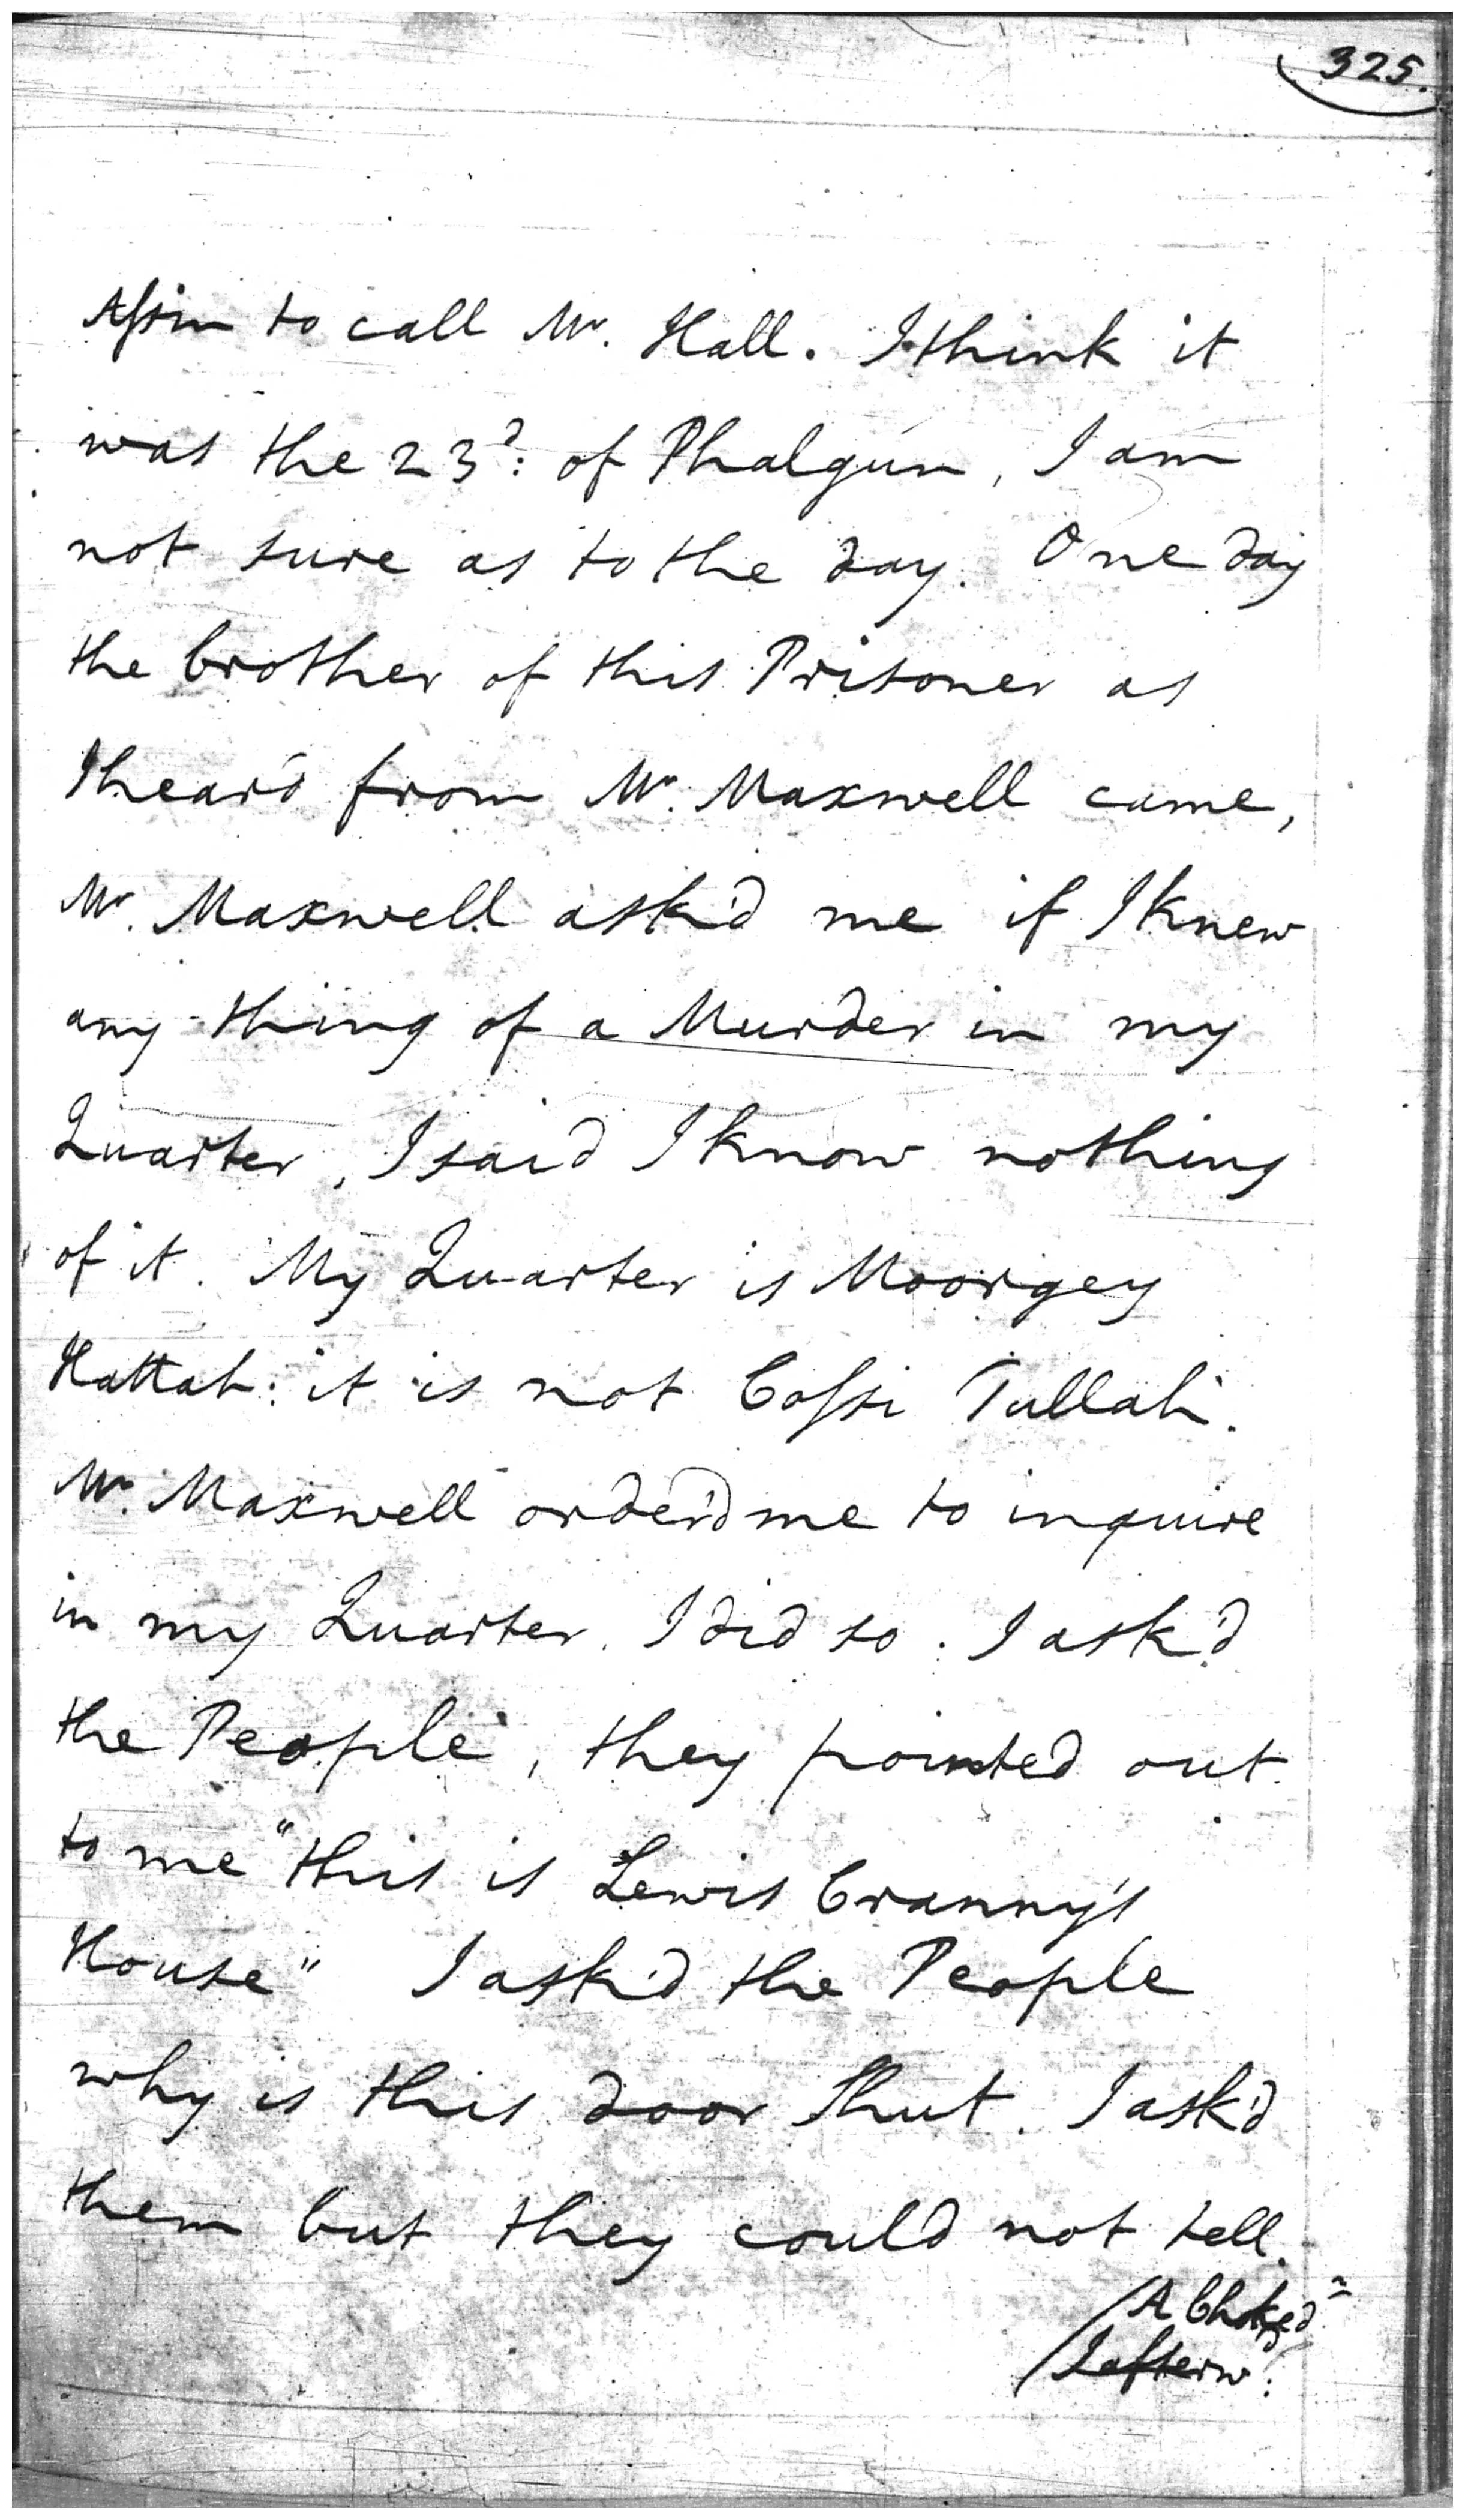 325.
Assim to call Mr. Hall. I think it
was the 23d: of Phalgun, I am
not sure as to the day. One day
the brother of this Prisoner as
I heard from Mr. Maxwell came,
Mr. Maxwell ask'd me if I knew
any thing of a Murder in my
Quarter, I said I know nothing
of it. My Quarter is Moorgey
Hattah: it is not Cossi Tullah.
Mr. Maxwell order'd me to inquire
in my Quarter. I did so. I ask'd
the People, they pointed out
to me "this is Lewis Cranny's
House" I ask'd the People
why is this door shut. I ask'd
them but they could not tell.
I afterwd: